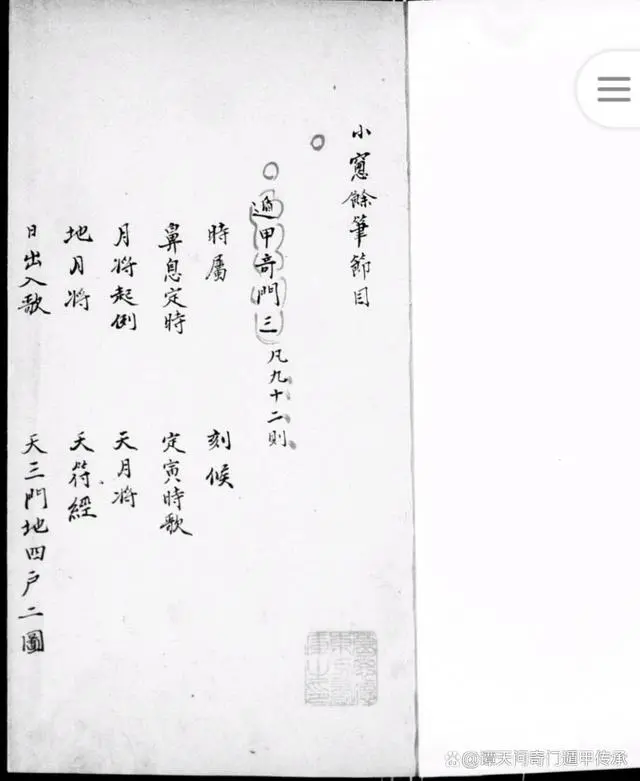 小窻餘筆節目
遁甲奇門三 凡九十二則
時屬 刻候
鼻息定時 定寅時歌
月將起例 天月將
地月將 天符經
日出入歌 天三門地四户二圖
@谭天河奇门遁甲传承